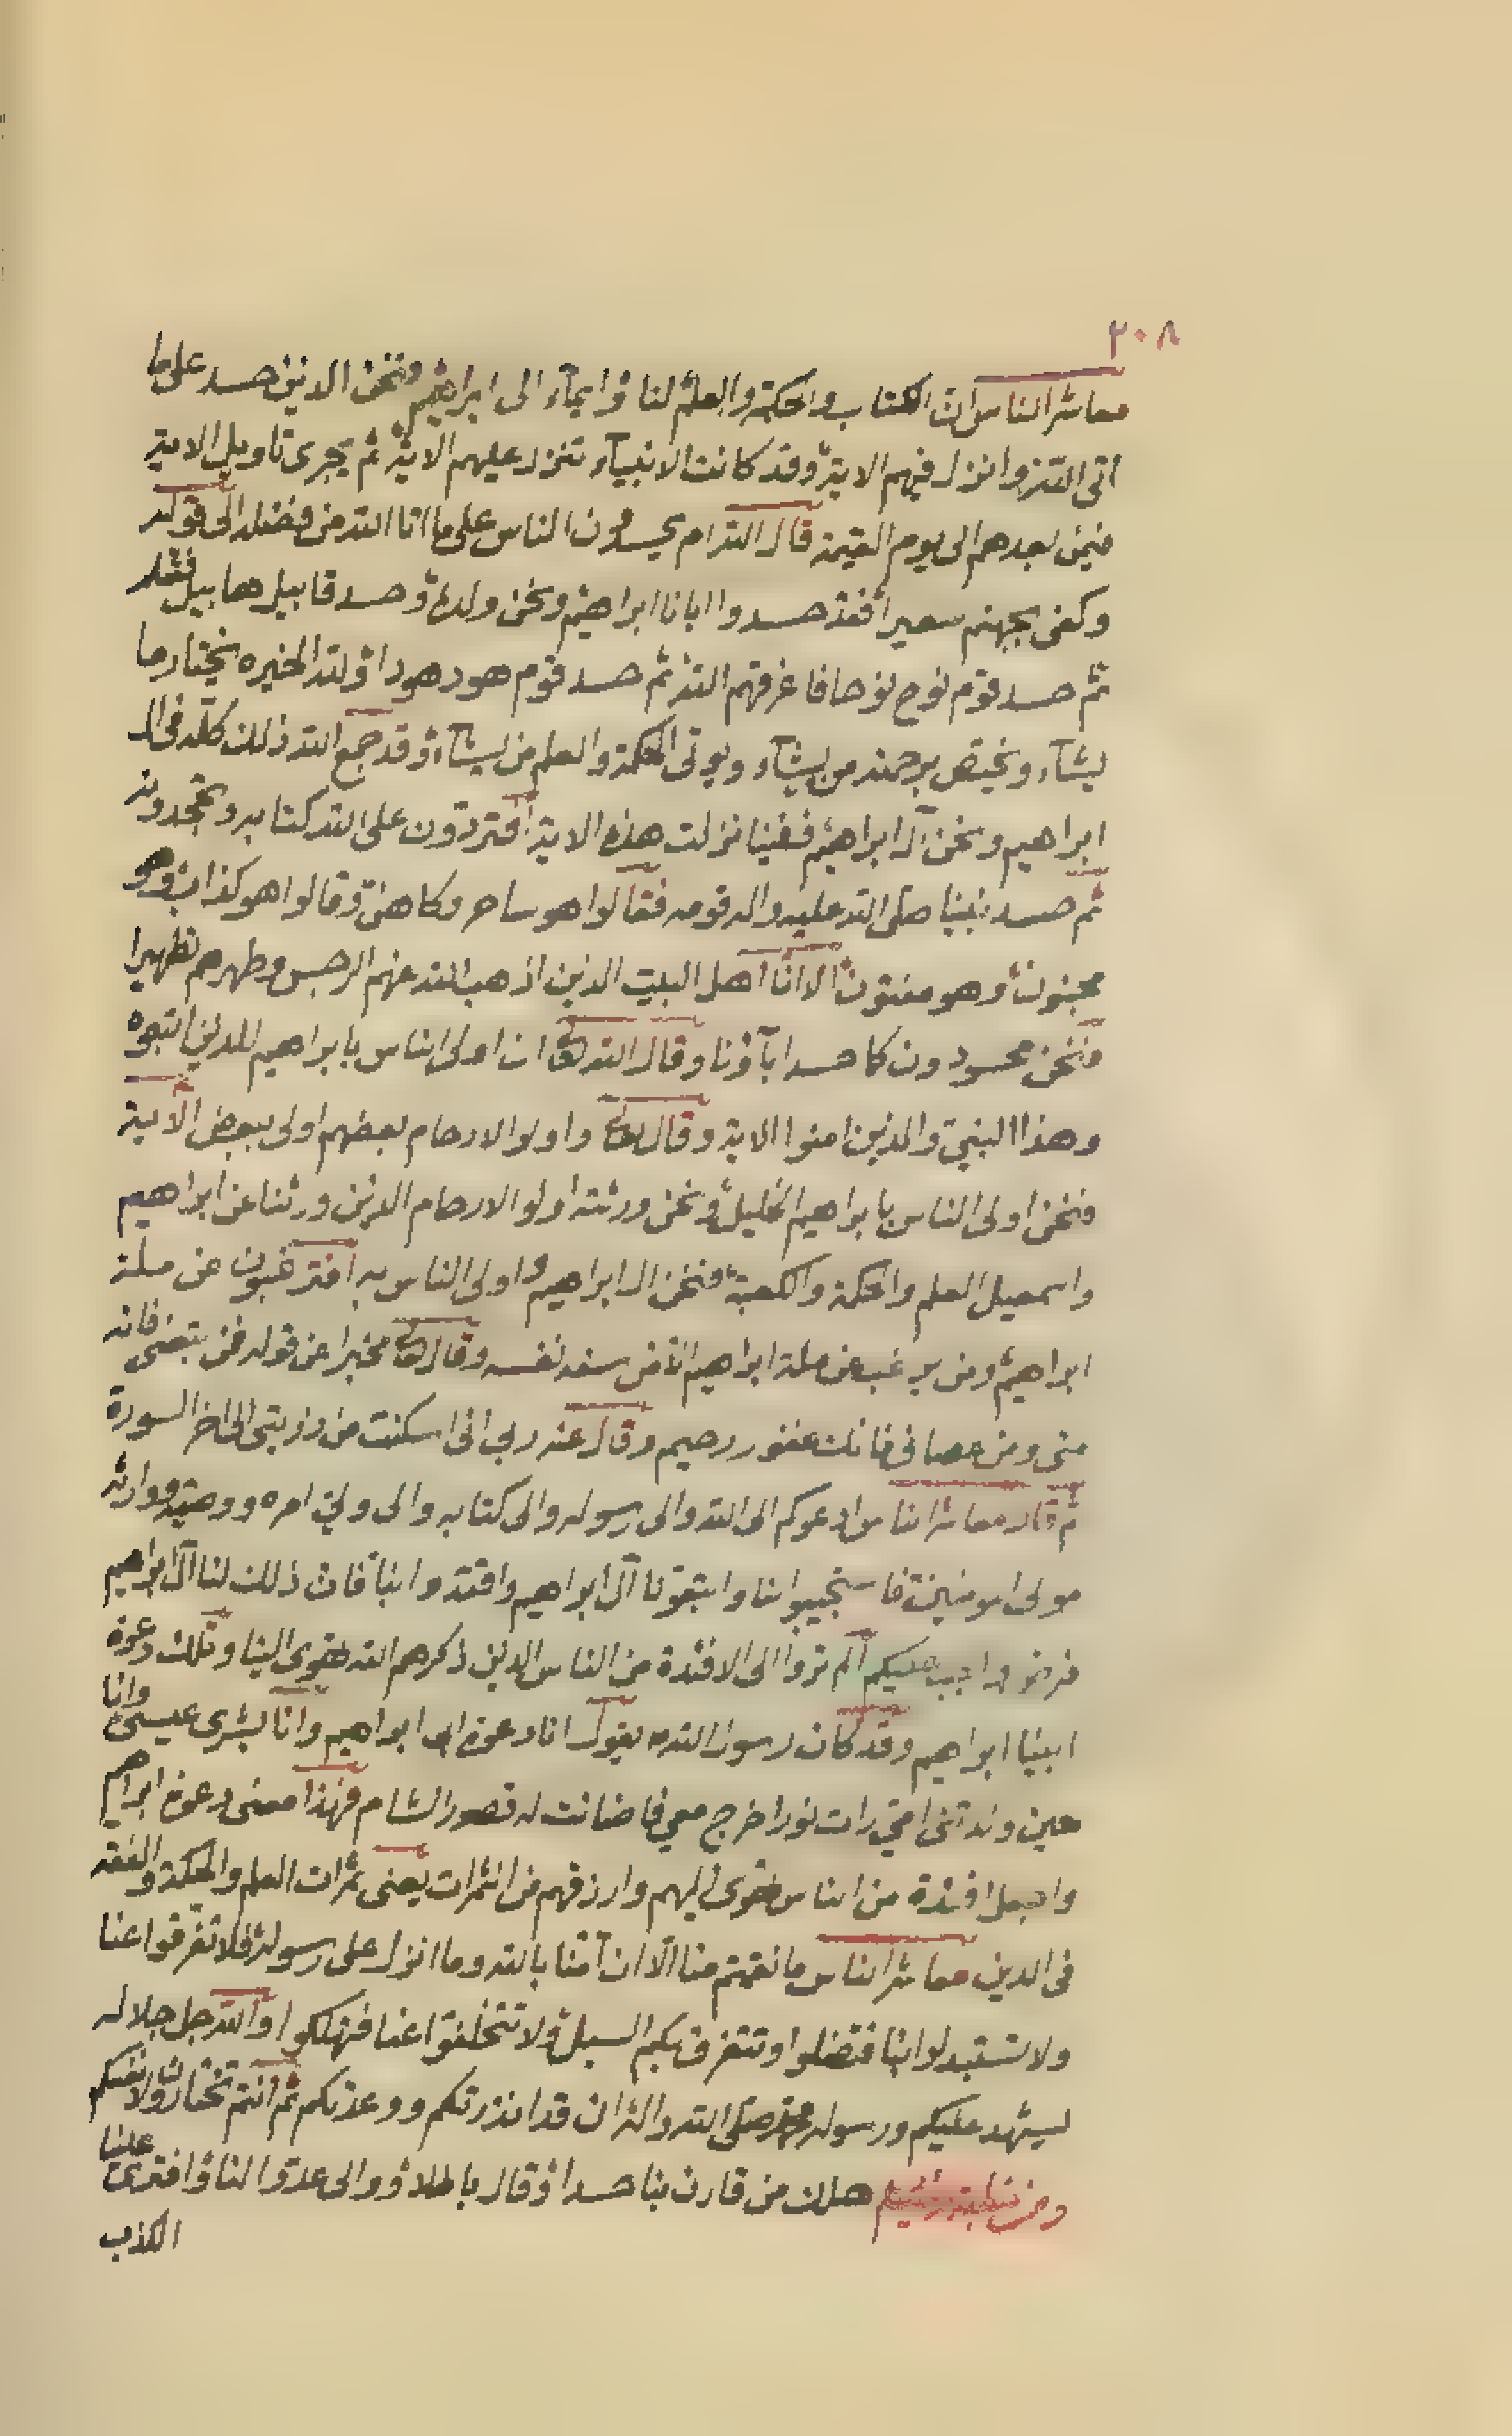 ٢٠٨
معاشر الناس ان الكتاب والحكمة والعلم لنا وايماء الى ابراهيم ونحن الذين حسد على ما
اتى الله وانزل فيهم الاية وقد كانت الانبياء تنزل عليهم الاية ثم يجرى تاويل الاية
فيمن بعدهم الى يوم القيمة قال الله ام يحسدون الناس على ما اتا الله من فضله الى قوله
وكفى بجهنم سعيرا فقد حسدوا ابانا ابراهيم ونحن ولده وحسد قابيل هابيل فقتله
ثم حسد قوم نوح نوحا فاغرقهم الله ثم حسد قوم هود هودا ولله الخيره يختار ما
يشآء ويختص برحمته من يشآء ويوتى الحكمة والعلم من يشآء وقد جمع الله ذلك كله فى ال
ابراهيم ونحن آل ابراهيم ففينا نزلت هذه الاية افتردّون على الله كتابه وتجحدونه
ثم حسد نبينا صلى الله عليه واله قومه فقالوا هو ساحر وكاهن وقالوا هو كذاب وهو
مجنون وهو مفتون الا انا اهل البيت الذين اذهب الله عنهم الرجس وطهرهم تطهيرا
فنحن محسودون كما حسد ابآؤنا وقال الله تعا ان اولى الناس بابراهيم للذين اتبعوه
وهذا النبي والذين امنوا الاية وقال تعا واولو الارحام بعضهم اولى ببعض الآية
فنحن اولى الناس بابراهيم الخليل ونحن ورثته اولو الارحام الذين ورثنا عن ابراهيم
واسمعيل العلم والحكمة والكعبة ونحن ال ابراهيم واولى الناس به افترغبون عن ملة
ابراهيم ومن يرغب عن ملة ابراهيم الّا من سفه نفسه وقال تعا مخبرا عن قوله فمن تبعنى فانه
منى ومن عصانى فانك غفور رحيم وقال عنه ربى انى اسكنت من ذريتى الى اخر السورة
ثم قال معاشر الناس ادعوكم الى الله والى رسوله والى كتابه والى ولي امره ووصيّه ووارثه
مولى المومنين فاستجيبوا لنا واتبعوا آل ابراهيم واقتدوا بنا فان ذلك لنا آل ابراهيم
فرض واجب عليكم الم تروا الى الافئدة من الناس الذين ذكرهم الله تهوى الينا وتلك دعوة
ابينا ابراهيم وقد كان رسول الله يقول انا دعوة ابى ابراهيم وانا بشرى عيسى وانا
حين ولدتنى امي رات نورا خرج معي فاضائت له قصور الشام فهذا معنى دعوة ابراهيم
واجعل افئدة من الناس تهوى اليهم وارزقهم من الثمرات يعنى ثمرات العلم والحكمة والفقه
فى الدين معاشر الناس ما نقمتم منا الّا ان آمنّا بالله وما انزل على رسوله فلا تفرّقوا عنا
ولا تستبدلوا بنا فتضلوا وتتفرق بكم السبل ولا تتخلفوا عنا فتهلكوا والله جل جلاله
يشهد عليكم ورسوله محمد صلى الله واله ان قد انذرتكم ووعدتكم ثم انتم تختارون لانفسكم
ومن هلك من قارن بنا حسدا وقال باطلا ووالى عدوا لنا وافترى علينا
الكذب